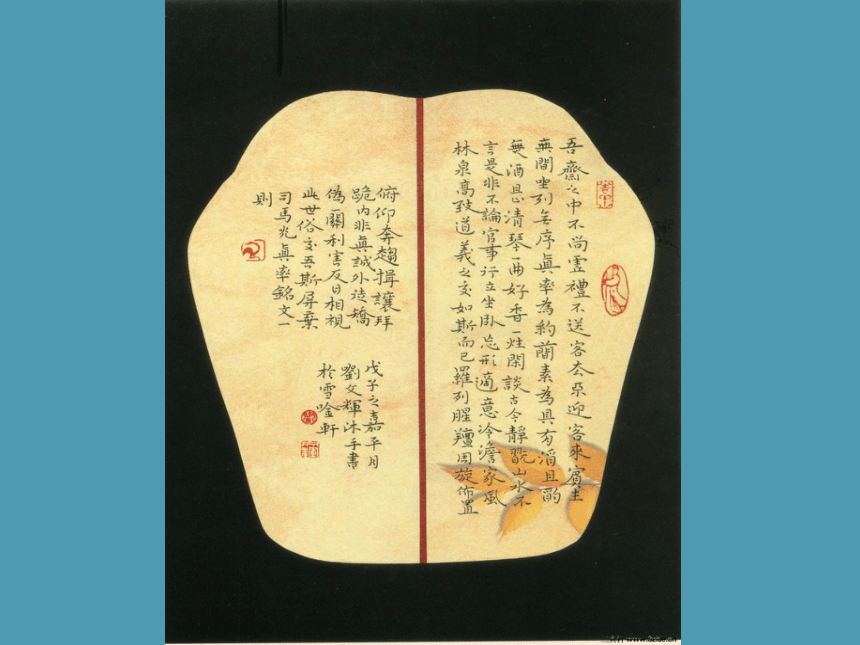 吾齋之中不尚虛禮不送客去迎客來賓主
無間坐列無序真率為約簡素為具有酒且酌
無酒且止清琴一曲好香一炷閑談古今靜翫山水不
言是非不論官事行立坐臥忘形適意冷澹家風
林泉高致道義之交如斯而已羅列腥羶周旋佈置
俯仰奔趨揖讓拜
跪內非真誠外徒矯
偽一關利害反目相視
此世俗交吾斯屏棄
司馬光真率銘文一
則
戊子之嘉平月
劉文輝沐手書
於雪唫軒